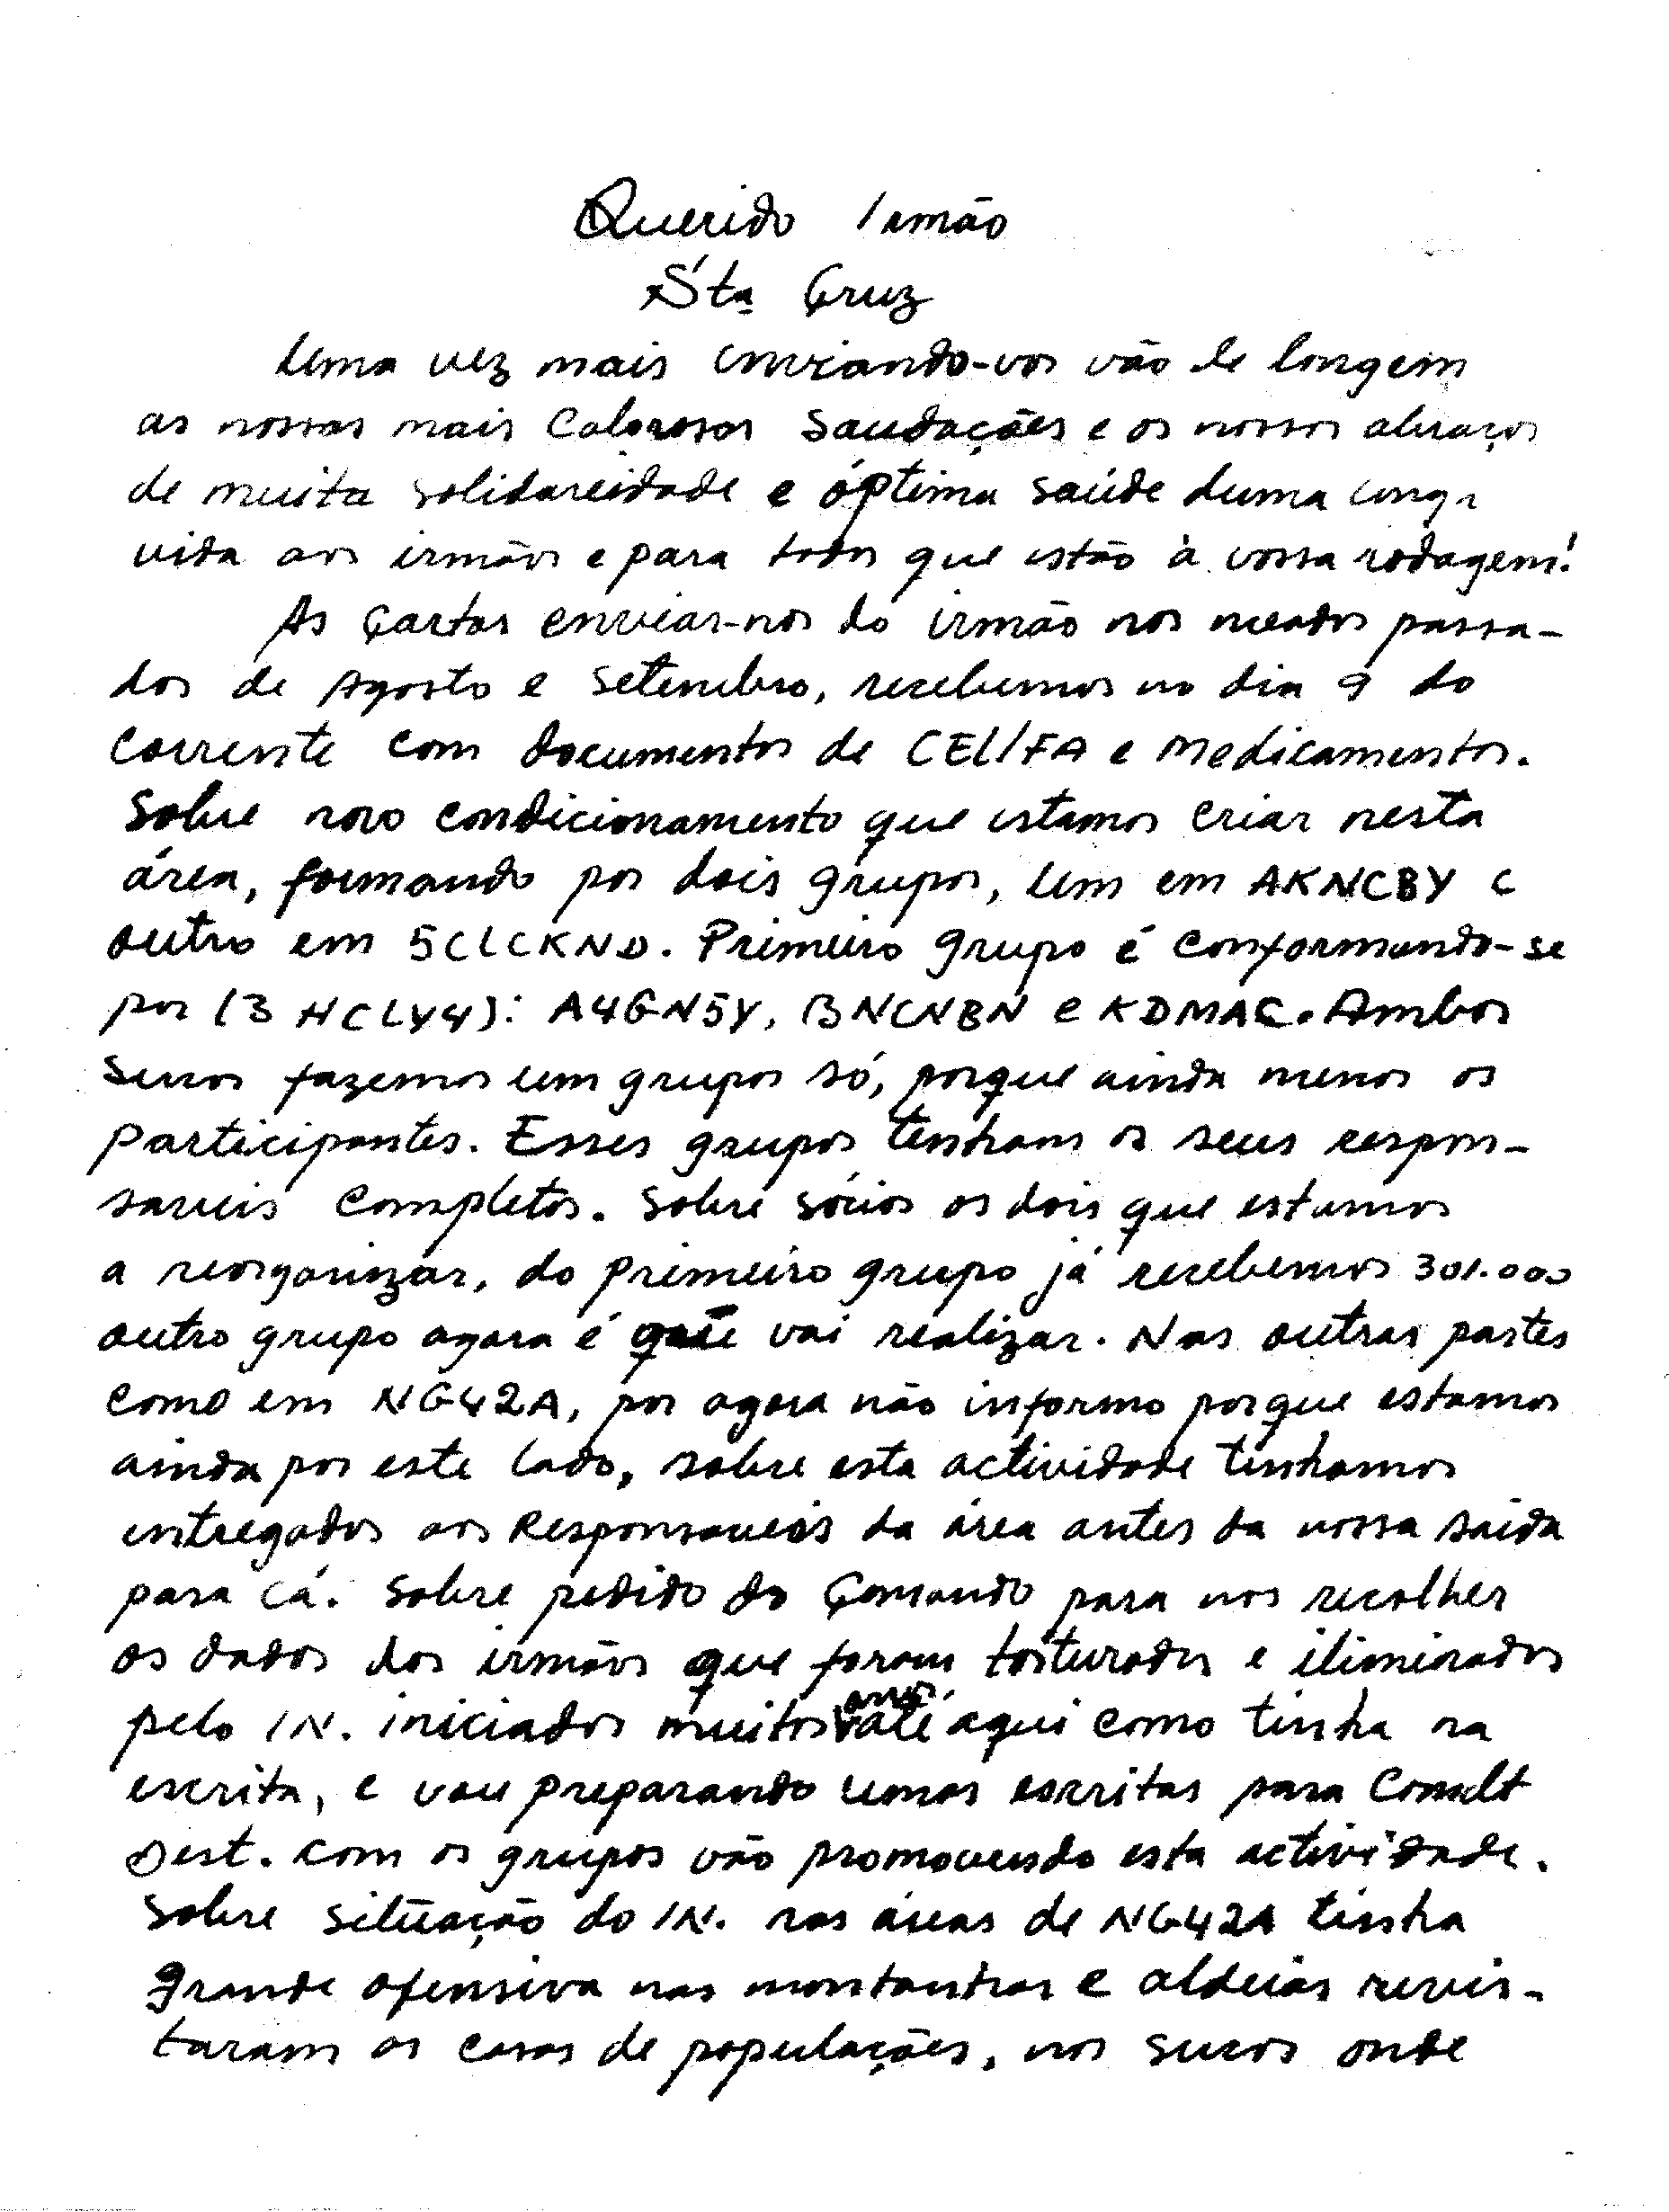 Querido Irmão
Sta Cruz
Uma vez mais enviando-vos vão de longem
as nossas mais Calorosas Saudações e os nossos abraços
de muita solidareidade e óptima saúde duma longa
vida aos irmãos e para todos que estão à vossa rodagem!
As Cartas enviar-nos do irmão nos meados passa-
dos de Agosto e Setembro, recebemos no dia 9 do
Corrente com documentos de CEL/FA e Medicamentos.
Sobre novo condicionamento que estamos criar nesta
área, formando por dois grupos, um em AKNCBY e
outro em 5CLCKND. Primeiro grupo é conformando-se
por (3 HCLY4): A4GN5Y, BNCNBN e KDMAC. Ambos
sucos fazemos um grupos só, porque ainda menos os
participantes. Esses grupos tenham os seus respon-
saveis completos. Sobre sócios os dois que estamos
a reorganizar, do primeiro grupo já recebemos 301.000
outro grupo agora é que vai realizar. Nas outras partes
como em NG42A, por agora não informo porque estamos
ainda por este lado, sobre esta actividade tinhamos
entregados aos Responsaveis da área antes da nossa saida
para cá. Sobre pedido do Comando para nos recolher
os dados dos irmãos que foram torturados e iliminados
pelo IN. iniciados muitos anos até aqui como tinha na
escrita, e vou preparando umas escritas para
Dest. com os grupos vão promovendo esta actividade.
Sobre situação do IN. nas áreas de NG42A tinha
grande ofensiva nas montanhas e aldeias revis-
taram as casas de populações, nos sucos onde